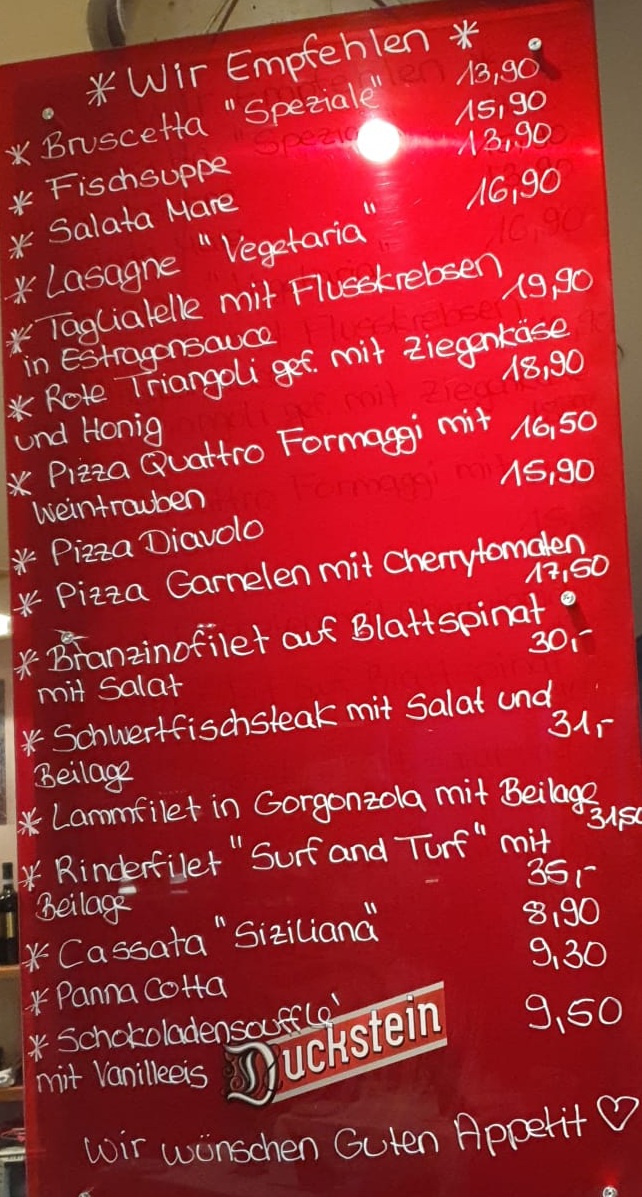 * Wir Empfehlen *
* Bruscetta "Speziale" 13,90
* Fischsuppe 15,90
* Salata Mare 13,90
* Lasagne "Vegetaria" 16,90
* Tagliatelle mit Flusskrebsen
in Estragonsauce 19,90
* Rote Triangoli gef. mit Ziegenkäse
und Honig 18,90
* Pizza Quattro Formaggi mit 16,50
Weintrauben
* Pizza Diavolo 15,90
* Pizza Garnelen mit Cherrytomaten
17,50
* Branzinofilet auf Blattspinat
mit Salat 30,-
* Schwertfischsteak mit Salat und
Beilage 31,-
* Lammfilet in Gorgonzola mit Beilage
31,50
* Rinderfilet "Surf and Turf" mit
Beilage 35,-
* Cassata "Siziliana" 8,90
* Panna Cotta 9,30
* Schokoladensoufflè 9,50
mit Vanilleeis
Duckstein
Wir wünschen Guten Appetit ♡